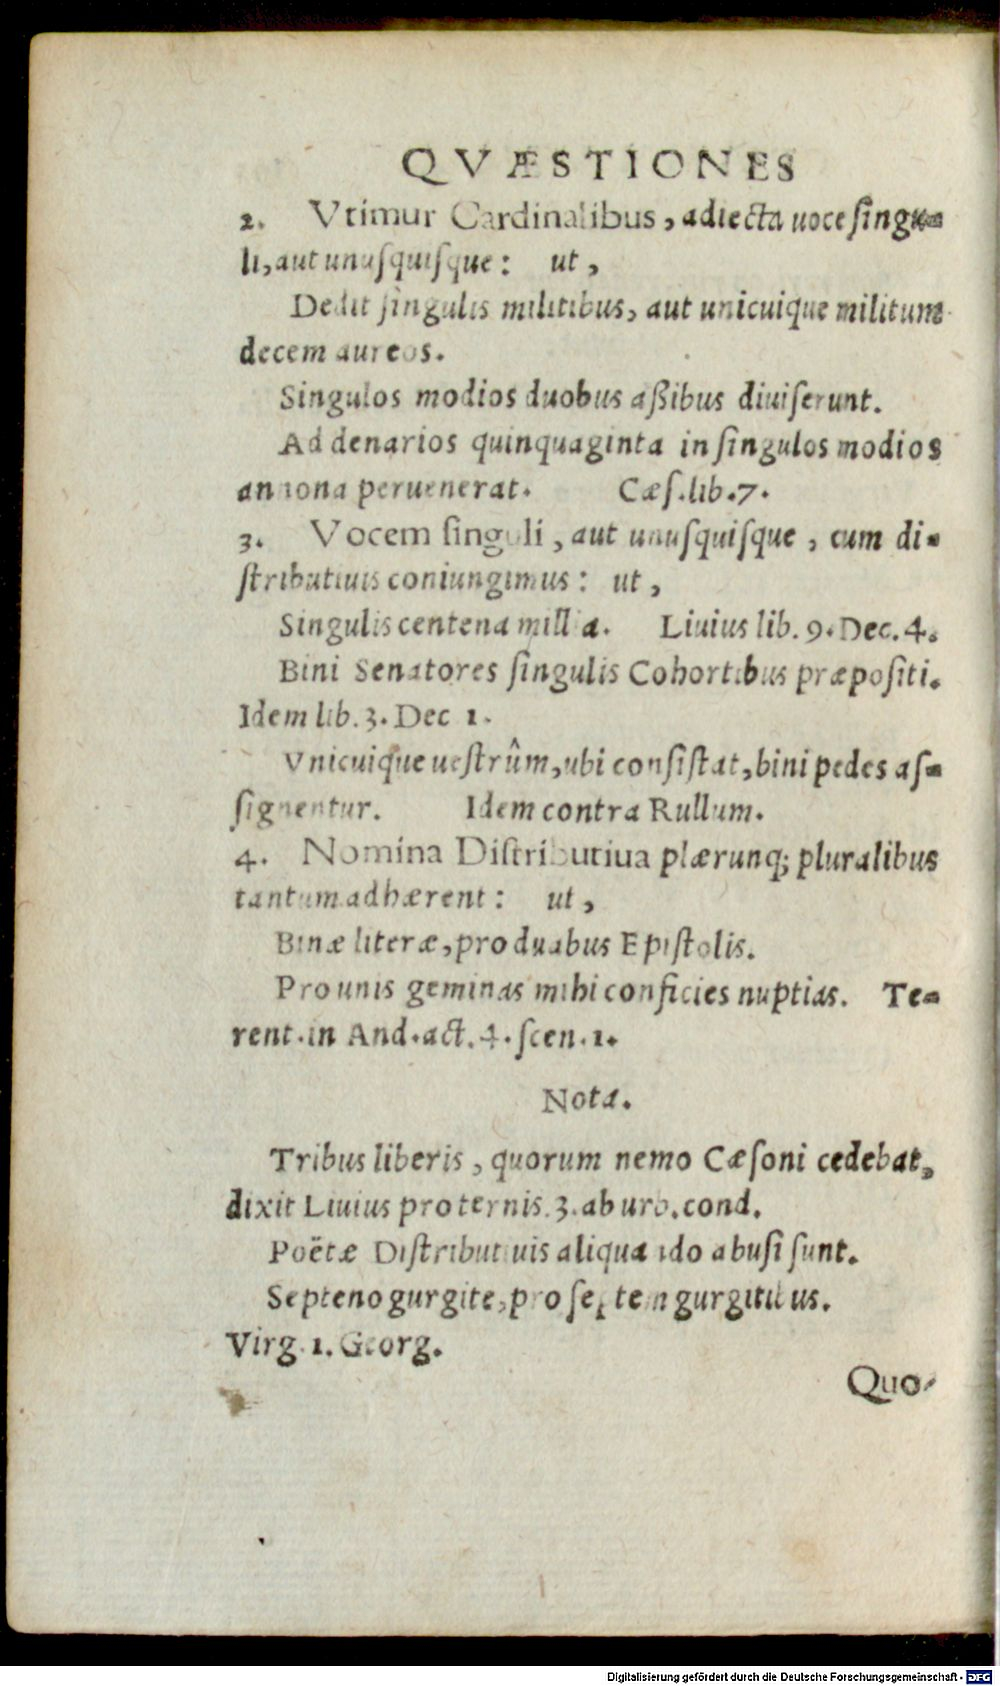 QVÆSTIONES
2. Vtimur Cardinalibus, adiecta uoce singu-
li, aut unusquisque: ut,
Dedit singulis militibus, aut unicuique militum
decem aureos.
Singulos modios duobus aßibus diuiserunt.
Ad denarios quinquaginta in singulos modios
annona peruenerat. Cæs. lib. 7.
3. Vocem singuli, aut unusquisque, cum di-
stributiuis coniungimus: ut,
Singulis centena millia. Liuius lib. 9. Dec. 4.
Bini Senatores singulis Cohortibus præpositi.
Idem lib. 3. Dec 1.
Vnicuique uestrûm, ubi consistat, bini pedes as-
signentur. Idem contra Rullum.
4. Nomina Distributiua plærunq; pluralibus
tantum adhærent: ut,
Binæ literæ, pro duabus Epistolis.
Pro unis geminas mihi conficies nuptias. Te-
rent. in And. act. 4. scen. 1.
Nota.
Tribus liberis, quorum nemo Cæsoni cedebat,
dixit Liuius pro ternis. 3. ab urb. cond.
Poëtæ Distributiuis aliquando abusi sunt.
Septeno gurgite, pro septem gurgitibus.
Virg. 1. Georg.
Quo-
Digitalisierung gefördert durch die Deutsche Forschungsgemeinschaft - DFG